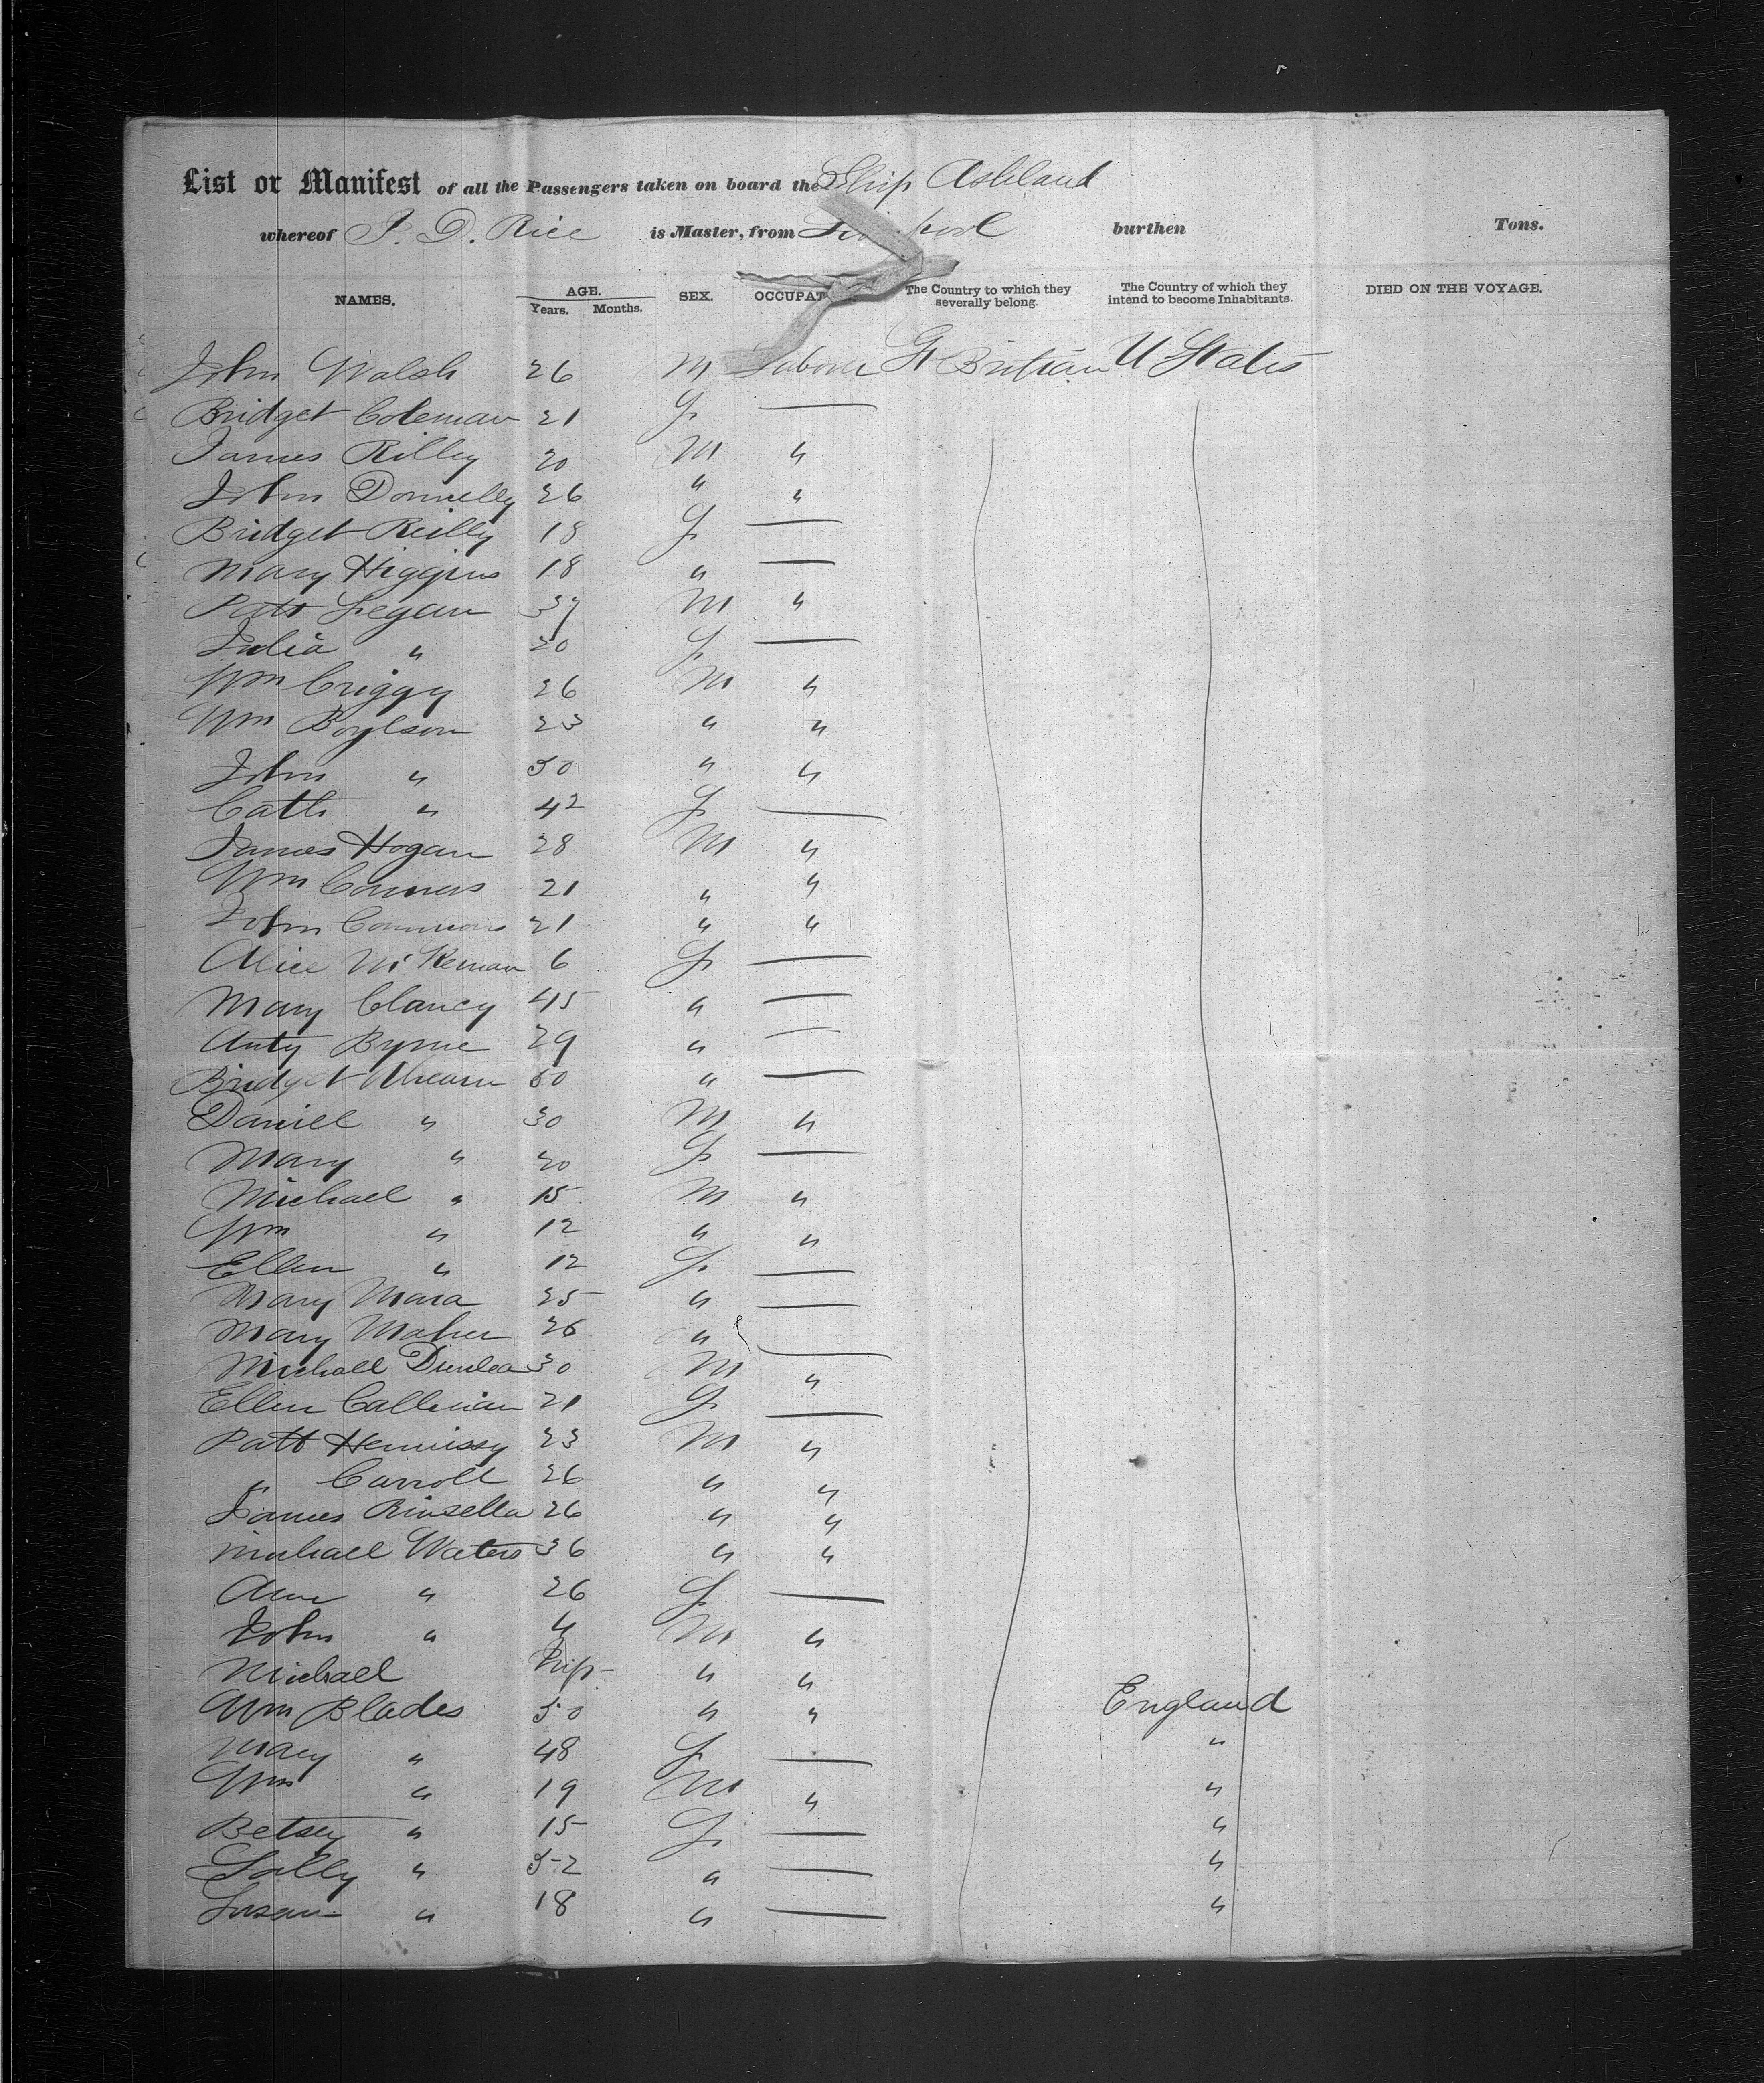 List or Manifest of all the Passengers taken on board the Ship Ashland
whereof J. D. Rice is Master, from burthen Tons.
NAMES. AGE. Years. Months. SEX. OCCUPAT The Country to which they severally belong. The Country of which they intend to become Inhabitants. DIED ON THE VOYAGE.
John Walsh 26 M Laborer Gt Britian U States
Bridget Coleman 21 F —
James Rilley 20 M "
John Donnelly 26 " "
Bridget Reilly 18 F —
Mary Higgins 18 " —
Patt Legan 37 M "
Julia " 20 F —
Wm Criggy 26 M "
Wm Boylson 23 " "
John " 50 " "
Cath " 42 F —
James Hogan 28 M "
Wm Connors 21 " "
John Commons 21 " "
Alice McKernan 6 F —
Mary Clancy 45 " —
Anty Byrne 29 " —
Bridget Ahearn 50 " —
Daniel " 30 M "
Mary " 20 F —
Michael " 15 M "
Wm " 12 " "
Ellen " 12 F —
Mary Mara 25 " —
Mary Maher 26 " —
Michael Dunlea 30 M "
Ellen Callinan 21 F —
Patt Hennissy 23 M "
" Carroll 26 " "
James Kinsella 26 " "
Michael Waters 36 " "
Ann " 26 F —
John " 4 M "
Michael " "
Wm Blades 50 " " England
Mary " 48 F — "
Wm " 19 M " "
Betsey " 15 F — "
Sally " 52 " — "
Susan " 18 " — "